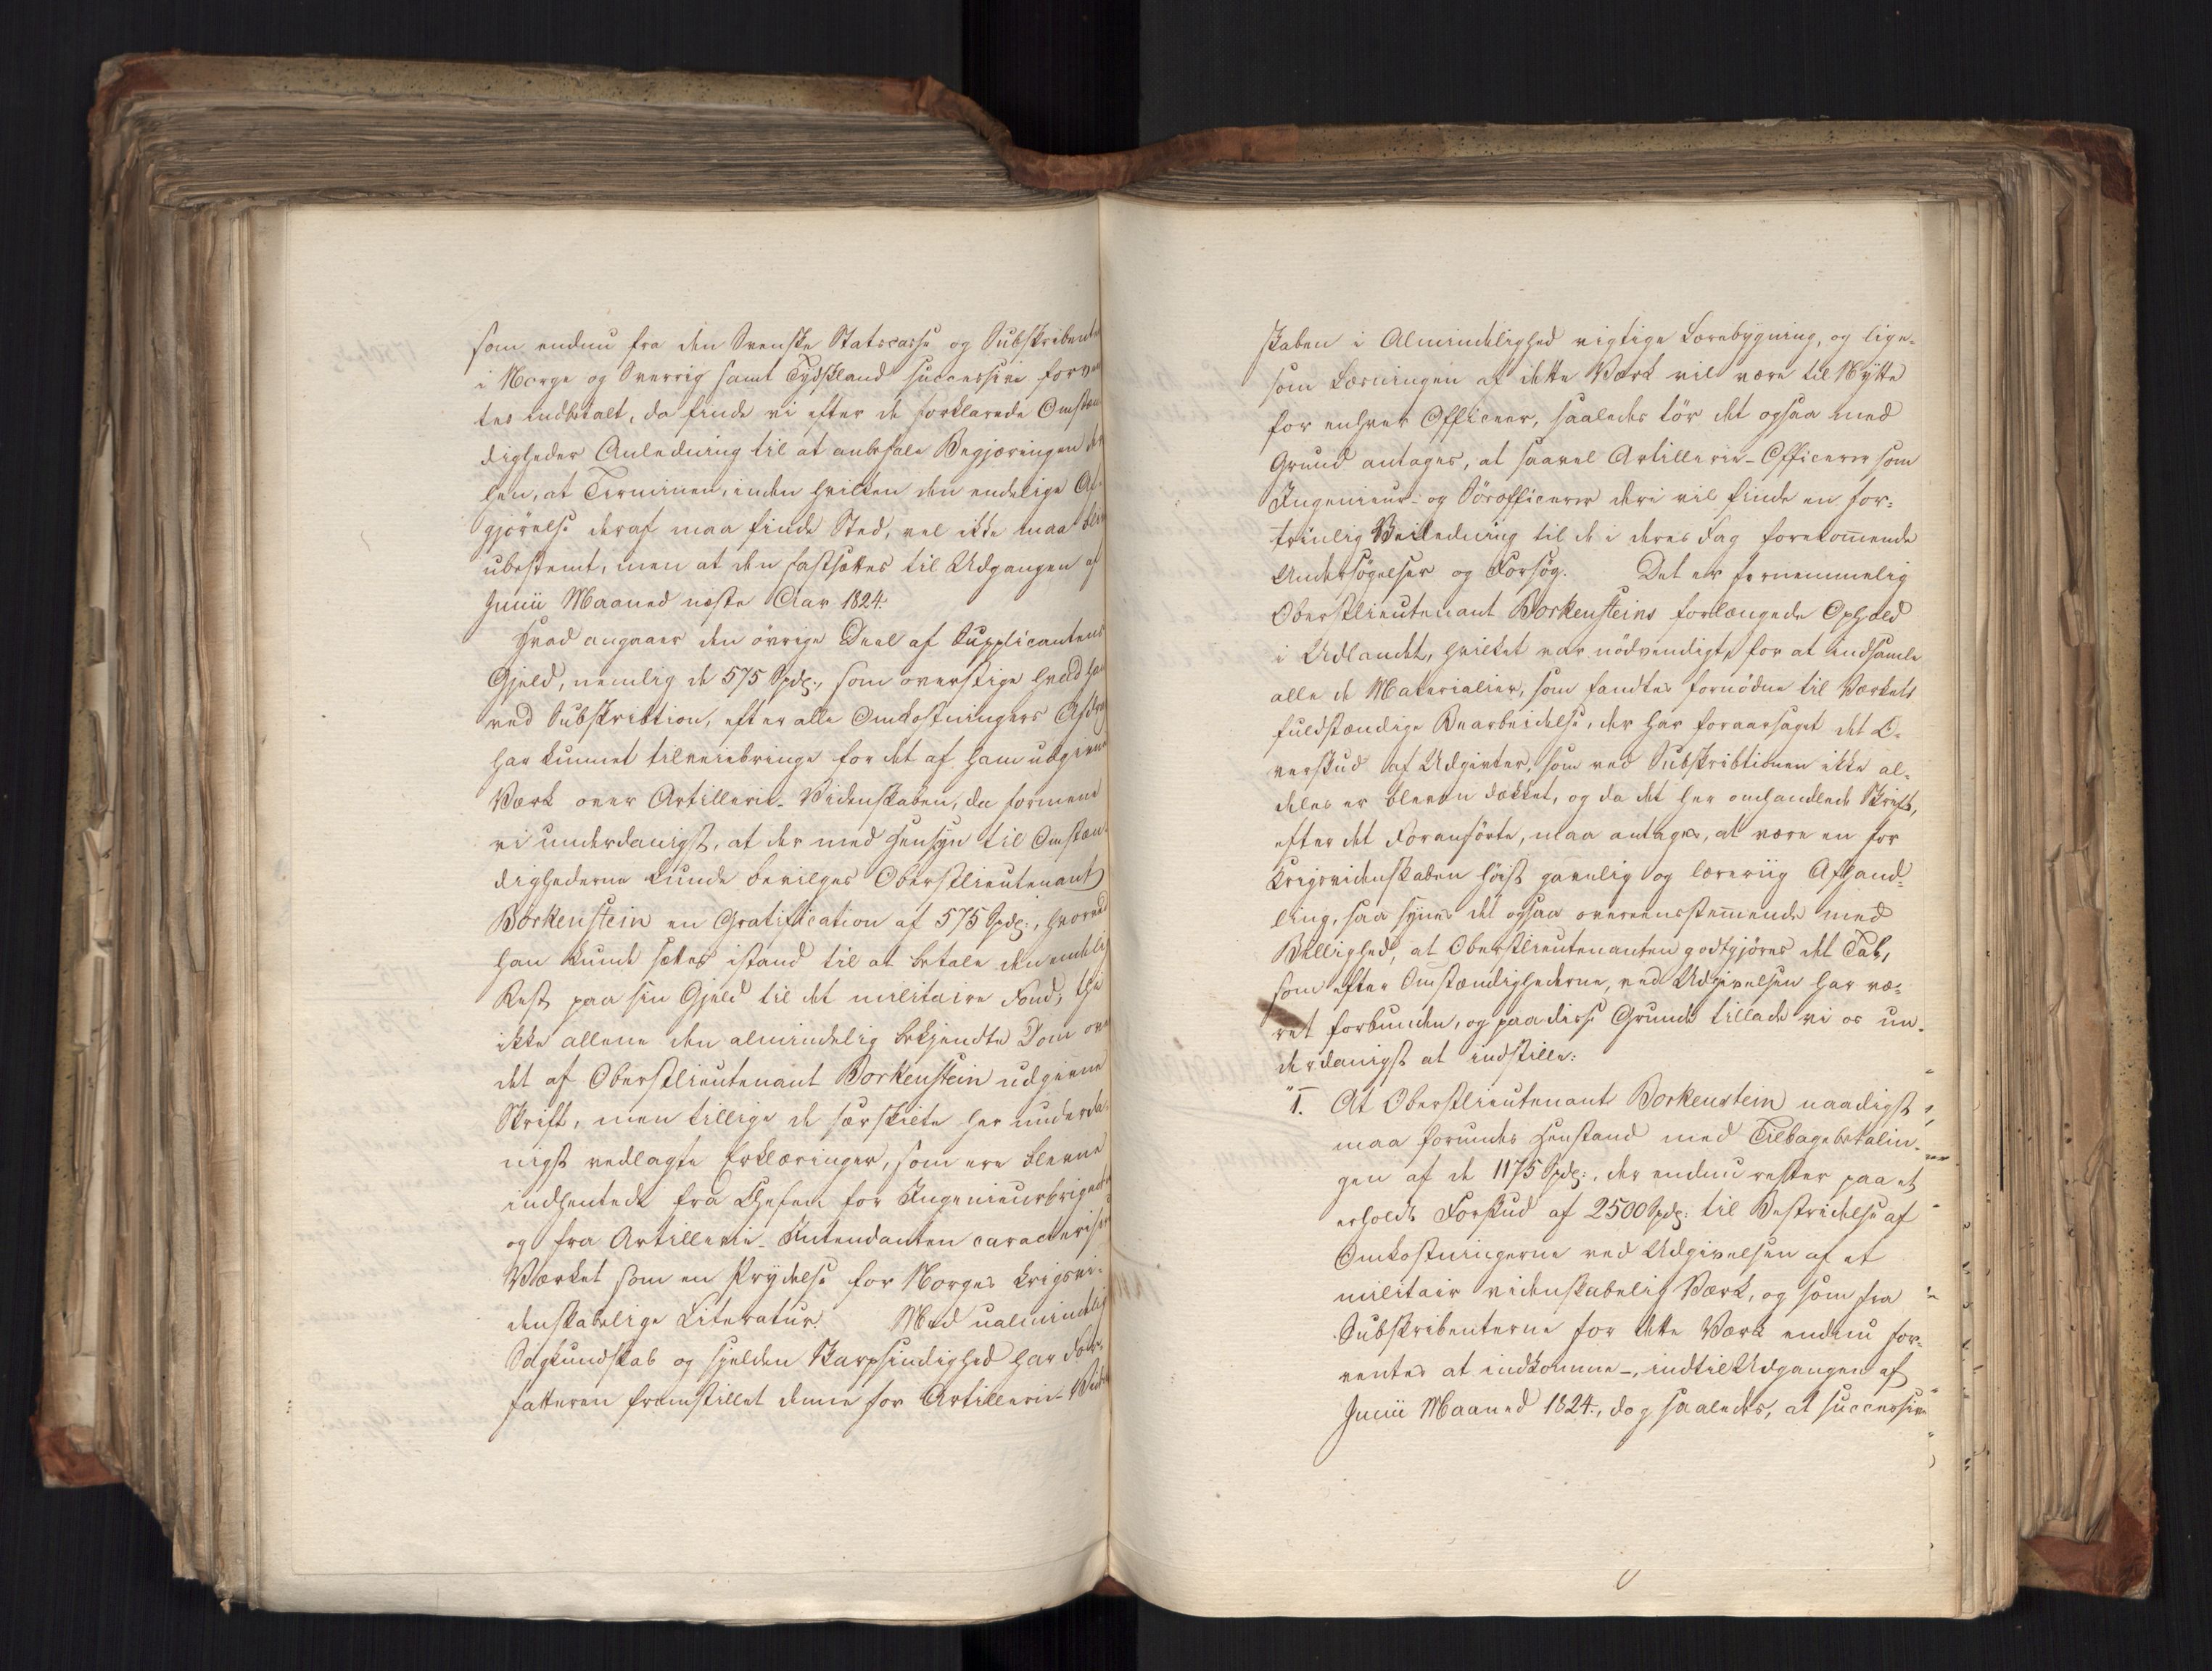 som endnu fra den Svenske Statscasse og Subskribente
i Norge og Sverrig samt Tydskland successive forven
tes indbetalt, da finde vi efter de forklarede Omstæn
digheder Anledning til at anbefale Begjæringen der
hen, at Terminen, inden hvilken den endelige Af-
gjörelse deraf maa finde Sted, vel ikke maa bliv
ubestemt, men at den fastsættes til Udgangen af
Junii Maaned næste Aar 1824.
Hvad angaaer den övrige Deel af Supplicantens
Gjeld, nemlig de 575 Spd:, som overstige hvad han
ved Subskribtion, efter alle Omkostningers Afdrag
har kunnet tilveiebringe for det af ham udgivne
Værk over Artillerie-Videnskaben, da formene
vi underdanigst, at der med Hensyn til Omstæn-
dighederne kunde bevilges Oberstlieutenant
Borkenstein en Gratification af 575 Spd:, hvorved
han kunde sættes istand til at betale den endelig
Rest paa sin Gjeld til det militaire Fond, thi
ikke allene den almindelig bekjendte Dom over
det af Oberstlieutenant Borkenstein udgivne
Skrift, men tillige de særskilte her underda-
nigst vedlagte Erklæringer, som ere blevne
indhentede fra Chefen for Ingenieurbrigaden
og fra Artillerie-Intendanten caracteriser
Værket som en Prydelse for Norges krigsvi-
denskabelige Literatur. Med ualmindelig
Sagkundskab og sjelden Skarpsindighed har For-
fatteren fremstillet denne for Artillerie-Viden
skaben i Almindelighed vigtige Lærebygning, og lige-
som Læsningen af dette Værk vil være til Nytte
for enhver Officeer, saaledes tör det ogsaa med
Grund antages, at saavel Artillerie-Officerer som
Ingenieur- og Söeofficerer deri vil finde en for-
trinlig Veiledning til de i deres Fag forekommende
Undersögelser og Forsög. Det er fornemmelig
Oberstlieutenant Borkensteins forlængede Ophold
i Udlandet, hvilket var nödvendigt, for at indsamle
alle de Materialier, som fandtes fornödne til Værkets
fuldstændige Bearbeidelse, der har foraarsaget det O-
verskud af Udgivter, som ved Subskribtionen ikke al-
deles er bleven dækket, og da det her omhandlede Skrift,
efter det Foranförte, maa antages, at være en for
Krigsvidenskaben höist gavnlig og lærerig Afhand-
ling, saa synes det ogsaa overeensstemmende med
Billighed, at Oberstlieutenanten godtgjöres det Tab,
som efter Omstændighederne, ved Udgivelsen har væ-
ret forbunden, og paa disse Grunde tillade vi os un-
derdanigst at indstille:
"1. At Oberstlieutenant Borkenstein naadigst
maa forundes Henstand med Tilbagebetalin-
gen af de 1175 Spd:, der endnu rester paa et
erholdt Forskud af 2500 Spd: til Bestridelse af
Omkostningerne ved Udgivelsen af et
militair videnskabelig Værk, og som fra
Subskribenterne for dette Værk endnu for-
ventes at indkomme-, indtil Udgangen af
Junii Maaned 1824, dog saaledes, at successive